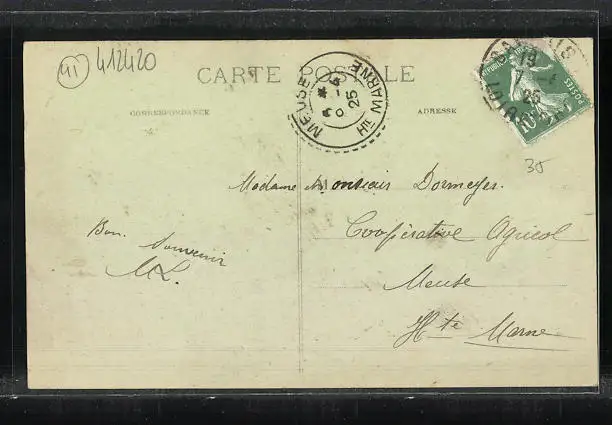 41
412420
CARTE POSTALE
CORRESPONDANCE
ADRESSE
MEUSE
25
Hte MARNE
19
7
25
POSTES
10
35
Madame Monsieur Dormoyer
Coopérative Agricol
Meuse
Hte Marne
Bon Souvenir
ML